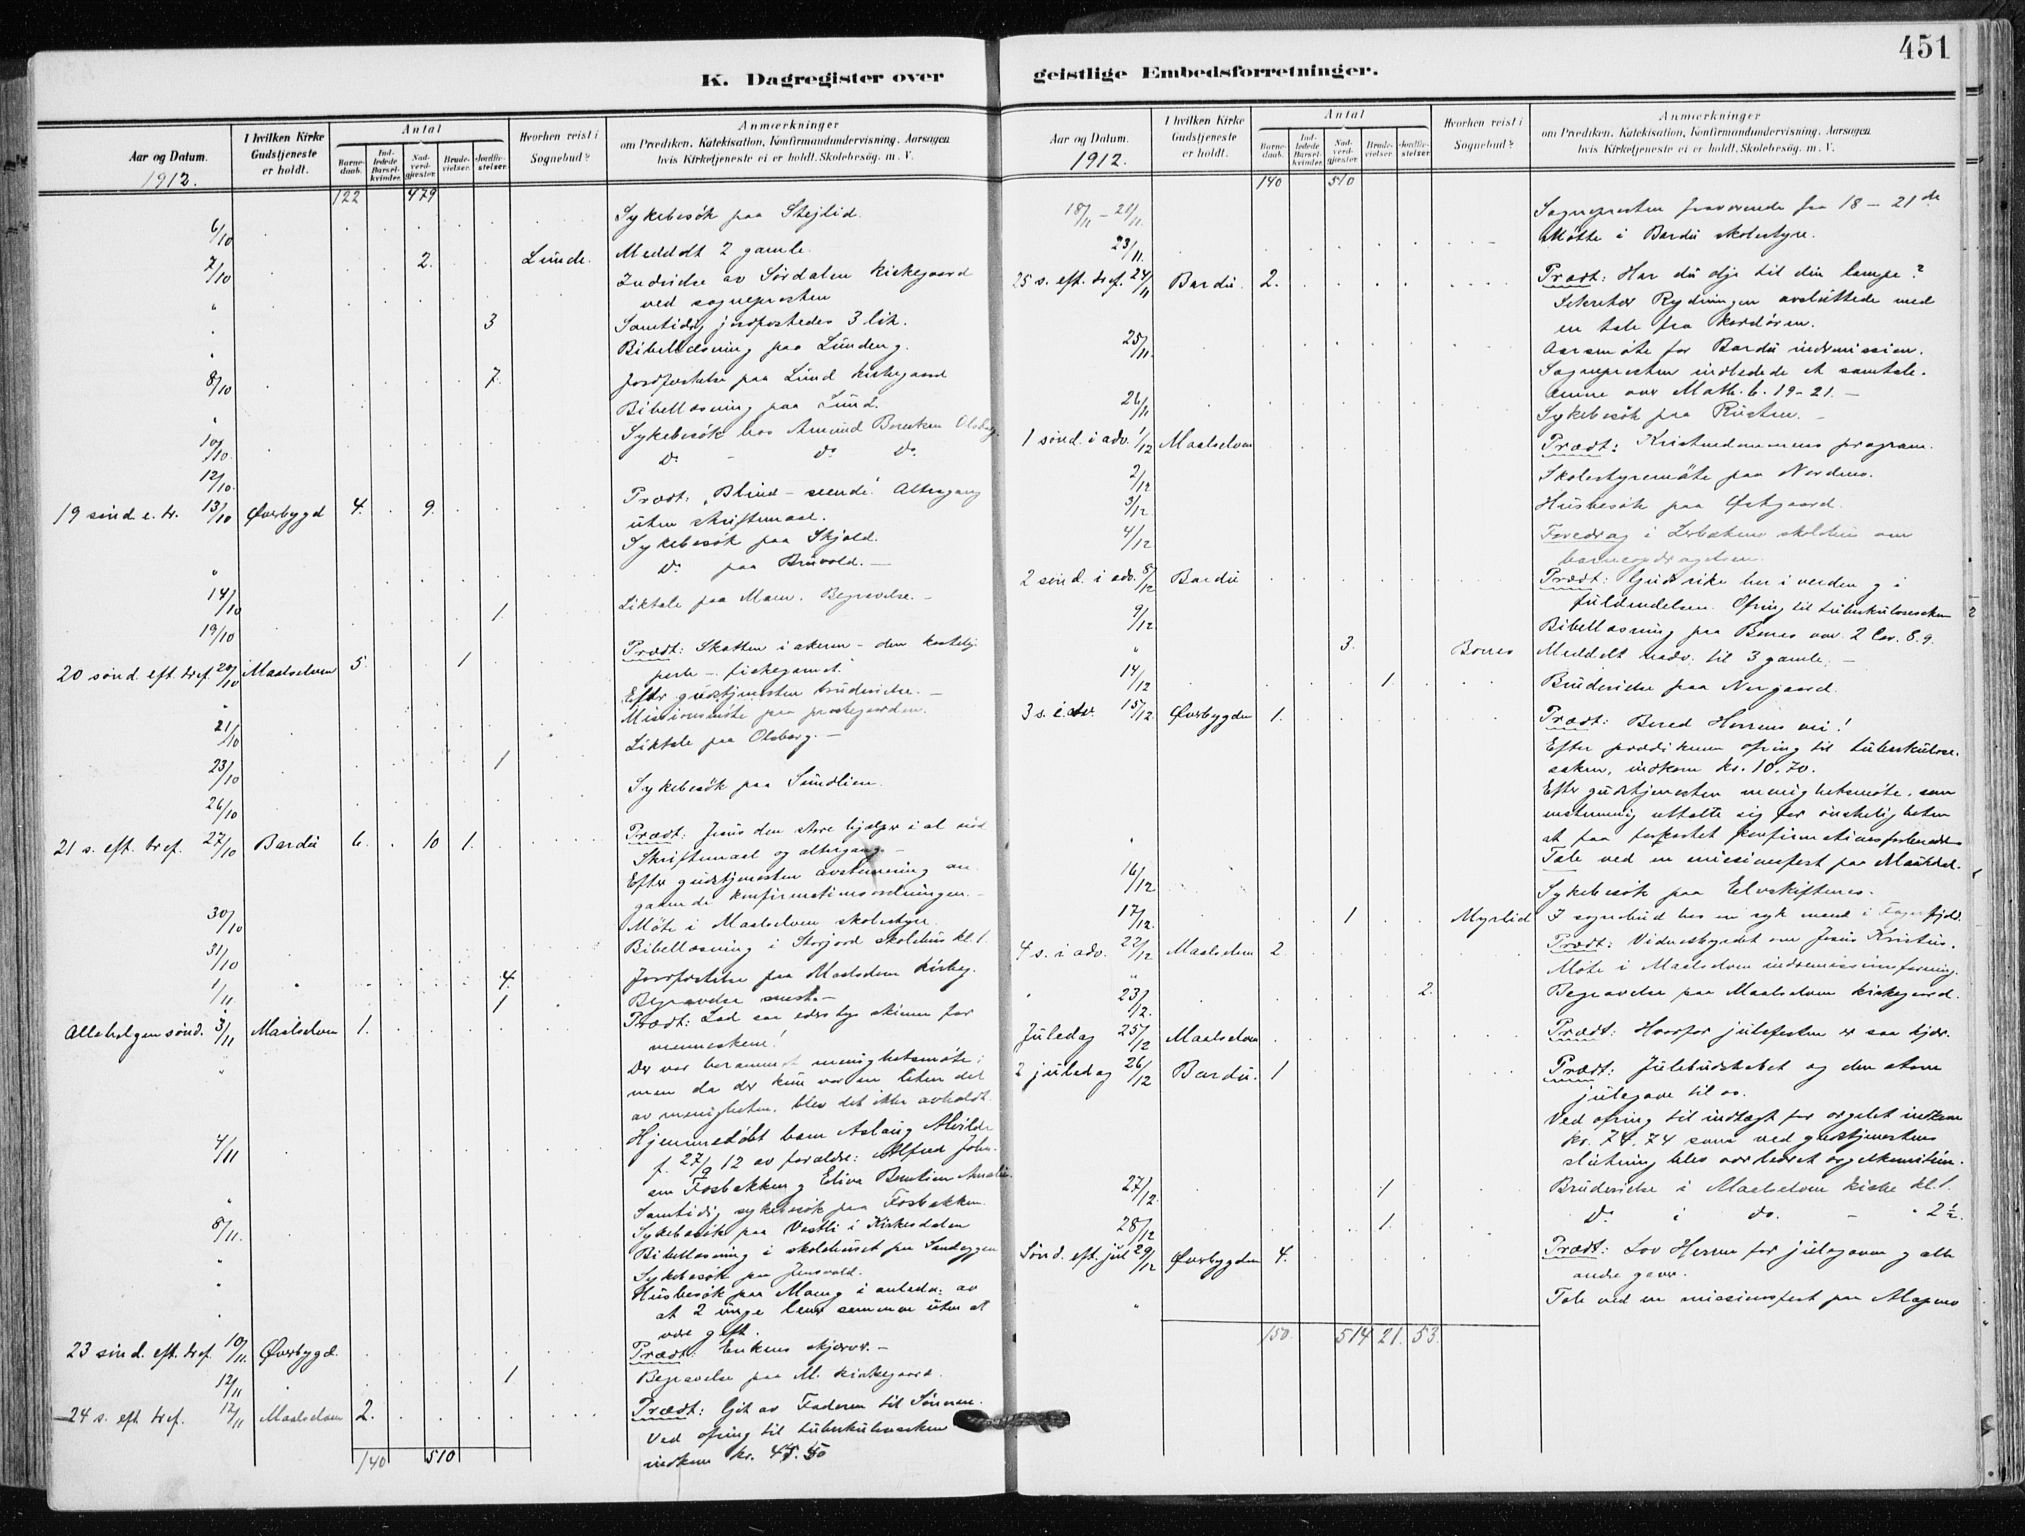 451
K. Dagregister over geistlige Embedsforretninger.
Aar og Datum. 1912. I hvilken Kirke Gudstjeneste er holdt. Antal Barnedaab. Indledede Barselkvinder. Nadverdgjæster. Brudevielser. Jordfæstelser. Hvorhen reist i Sognebud? Anmærkninger om Prædiken, Katekisation, Konfirmandundervisning, Aarsagen hvis Kirketjeneste ei er holdt, Skolebesøg. m. V.
122 479
6/10 Sykebesök paa Stejlid.
7/10 2. Lunde. Meddelt 2 gamle.
" Indvielse av Sördalen kirkegaard
ved sogneprosten
" 3 Samtidig jordfæstedes 3 lik.
" Bibellæsning paa Lundeng.
8/10 7. Jordfæstelse paa Lund kirkegaard
" Bibellæsning paa Lund.
10/10 Sykebesök hos Amund Olsborg.
12/10 Do - Do Do
19 sönd. e. tr. 13/10 Øverbygd 4. 9. Prædt: "Blind - seende". Altergang
uten skriftemaal.
" Sykebesök paa Skjold.
Do paa Bruvold. —
14/10 1. Liktale paa Moen. Begravelse. —
19/10
20 sönd. eft. tref. 20/10 Maalselven 5. 1 Prædt: Skatten i akeren - den kostelige
perle - fiskegarnet.
Efter gudstjenesten brudevielse. —
" Missionsmöte paa prestegaarden.
21/10 Liktale paa Olsborg. —
23/10 1
26/10 Sykebesök paa Sundlien.
21 s. eft. tref. 27/10 Bardu 6. 10 1. Prædt: Jesus den store hjælper i al nöd
Skriftemaal og altergang. —
Efter gudstjenesten avstemning an-
gaaende konfirmationsordningen. —
30/10 Möte i Maalselven skolestyre.
31/10 Bibellæsning i Storjord skolehus kl. 1.
1/11 4. Jordfæstelse paa Maalselven kirkeg.
" 1 Begravelse smst. —
Allehelgensönd. 3/11 Maalselven 1. Prædt: Lad saa eders lys skinne for
menneskene!
" Der var berammet menighetsmöte;
men da der kun var en liten del
av menigheten, blev det ikke avholdt.
4/11 Hjemmedöbt barn Aslaug Alvilde
f. 27/9 12 av forældre: Alfred Johan-
sen Fosbakken g Elise Amalie
" Samtidig sykebesök paa Fosbakken.
8/11. Sykebesök paa Vestli i Kirkesdalen
" Bibellæsning i skolehuset paa Sandeggen
" Sykebesök paa Jensvold.
" Husbesök paa Moen g i anledn. av
at 2 unge lever sammen uten at
være gift.
23 sönd. eft. tref. 10/11. Øverbygd. Prædt: Enkens skjærv. —
12/11 1 Begravelse paa M. kirkegaard.
24 s. eft. tref. 12/11 Maalselven 2. Prædt: Git av Faderen til Sönnen.
Ved ofring til tuberkulosesaken
indkom kr. 45.50
140 510
Aar og Datum. 1912. I hvilken Kirke Gudstjeneste er holdt. Antal Barnedaab. Indledede Barselkvinder. Nadverdgjæster. Brudevielser. Jordfæstelser. Hvorhen reist i Sognebud? Anmærkninger om Prædiken, Katekisation, Konfirmandundervisning, Aarsagen hvis Kirketjeneste ei er holdt, Skolebesøg. m. V.
140 510
18/11 - 21/11 Sogneprosten fraværende fra 18 - 21 de
23/11. Mötte i Bardu skolestyre.
25 s. eft. tref. 24/11 Bardu. 2. Prædt: Har du olje til din lampe?
Sekretær Rydningen avsluttede med
en tale fra kordören.
25/11. Aarsmöte for Bardu indremission.
Sogneprosten indledede et samtale-
emne over Math. 6. 19-21. —
26/11 Sykebesök paa Rusten. —
1 sönd. i adv. 1/12 Maalselven Prædt: Kristendommens program.
2/12 Skolestyremöte paa Nordmo.
3/12. Husbesök paa Østgaard.
4/12 Foredrag i skolehus om
barneopdragelsen.
2 sönd. i adv. 8/12 Bardu Prædt: Guds rike her i verden g i
fuldendelsen. Ofring til tuberkulosesaken
9/12 Bibellæsning paa Bones over 2 Cor. 8. 9.
" 3. Bones Meddelt nadv. til 3 gamle. —
14/12 1. Brudevielse paa Norgaard.
3 s. i adv. 15/12. Øverbygden 1. Prædt: Bered Herrens vei!
Efter prædikenen ofring til tuberkulose-
saken, indkom kr. 10.70.
Efter gudstjenesten menighetsmöte, som
enstemmig uttalte sig for önskeligheten
at faa forkortet konfirmationsforberedelsen
" Tale ved en missionsfest paa
16/12 Sykebesök paa Elveskiftenes.
17/12. 1 Myrlid I sognebud hos en syk mand i Fagerfjeld
4 s. i adv. 22/12 Maalselven 2. Prædt: Vidnesbyrdet om Jesus Kristus.
" Möte i Maalselven indremissionsforening.
23/12. 2. Begravelse paa Maalselven kirkegaard.
Juledag 25/12 Maalselven Prædt: Hvorfor julefesten er saa kjær.
2 juledag 26/12 Bardu. 1 Prædt: Julebudskabet og den store
julegave til os.
Ved ofring til indkjøpt for orgelet indkom
kr. 74.74 som ved gudstjenestens
slutning blev overleveret orgelkomiteen.
27/12. 1 Brudevielse i Maalselven kirke kl. 1.
28/12 1. Do i do. - " 2 1/2.
Sönd. eft. jul 29/12 Øverbygden 4. Prædt: Lov Herren for julegaven g alle
andre gaver.
" Tale ved en missionsfest paa Alapmo
150. 514 21. 53.